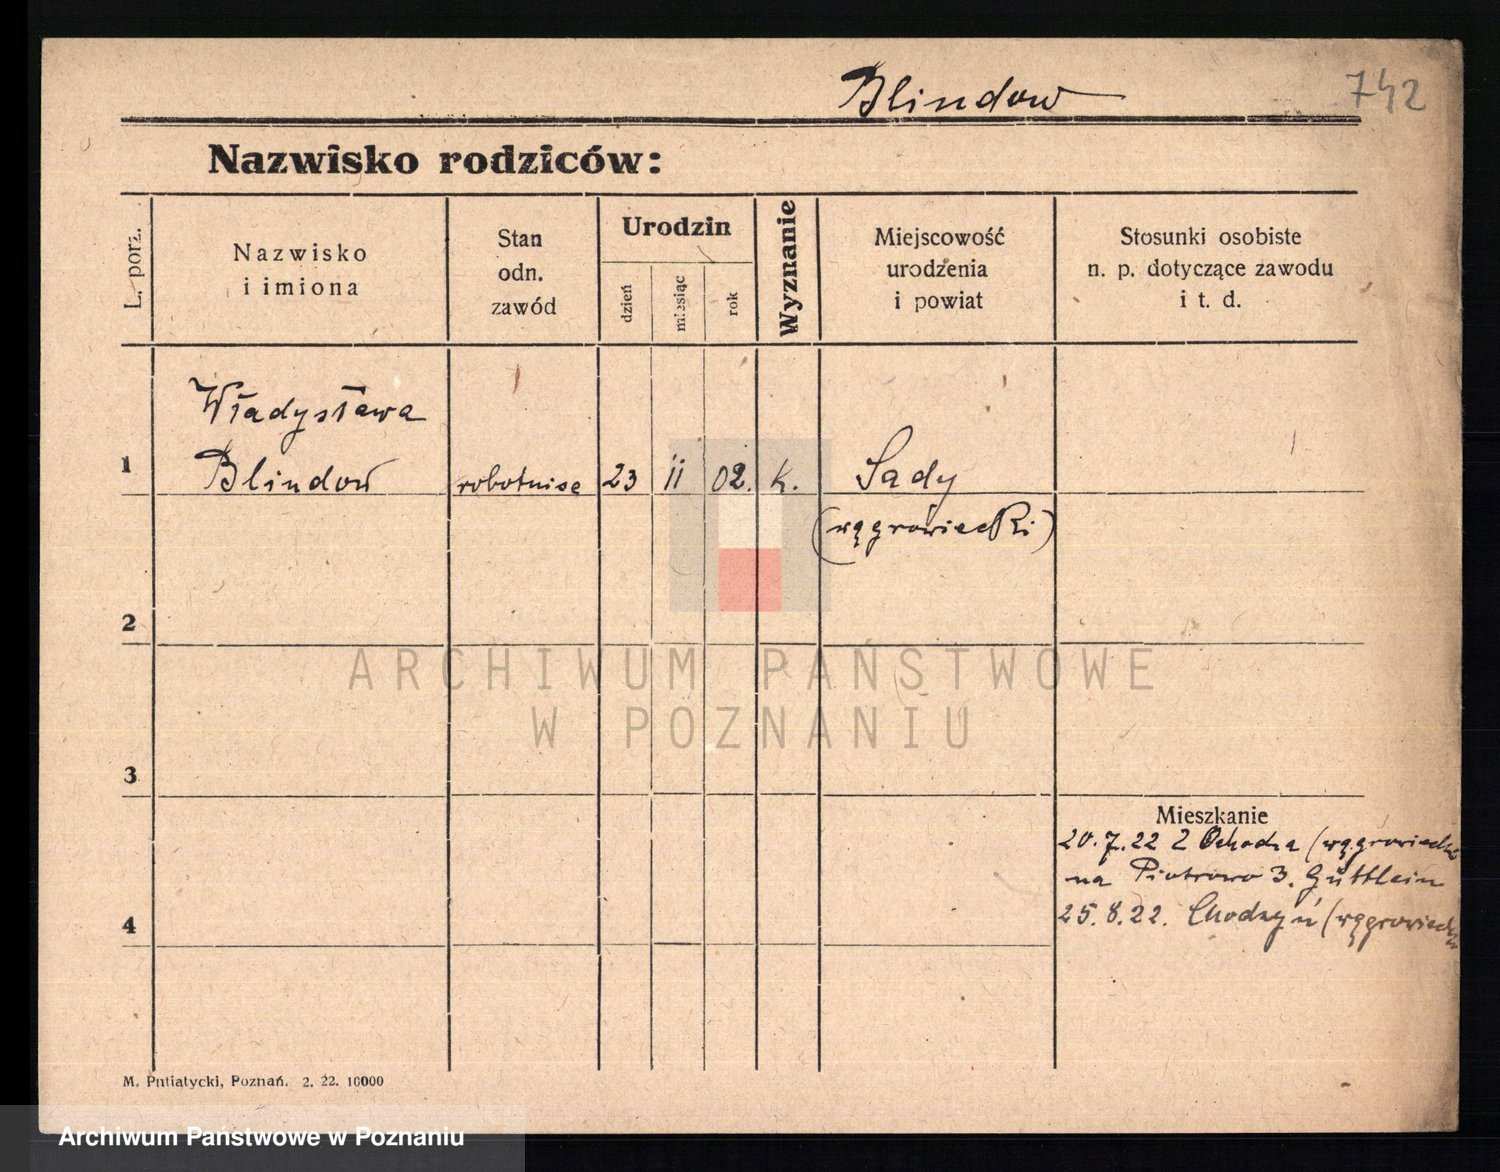 Blindow 742
Nazwisko rodziców:
L. porz.
Nazwisko
i imiona
Stan
odn.
zawód
Urodzin
dzień
miesiąc
rok
Wyznanie
Miejscowość
urodzenia
i powiat
Stosunki osobiste
n. p. dotyczące zawodu
i t. d.
Władysława
1 Blindow 23 II 02. k. Sady
(wągrowiecki)
2
ARCHIWUM PAŃSTWOWE
W POZNANIU
3
Mieszkanie
20.7.22 Z Ochodza (wągrowiecki
na Piotrowo 3. Güttlein
25.8.22. Chodzyń (wągrowiecki
4
M. Putiatycki, Poznań. 2. 22. 10000
Archiwum Państwowe w Poznaniu